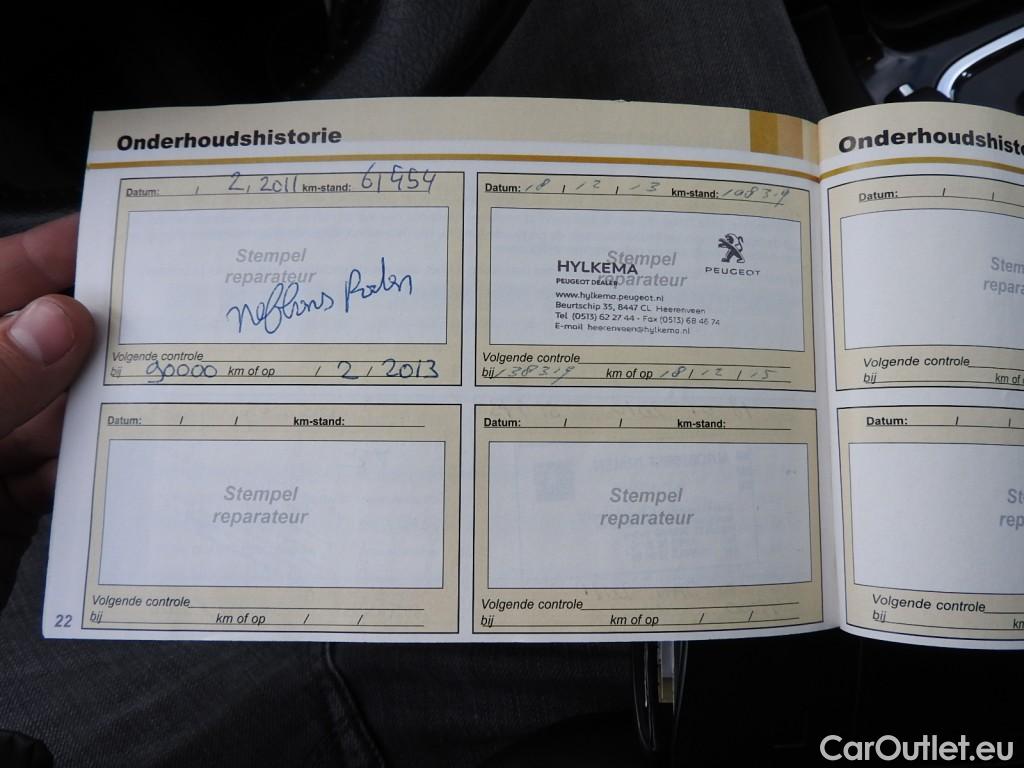 Onderhoudshistorie
Datum: / 2, 2011 km-stand: 61954
Stempel
reparateur
Volgende controle
bij 90000 km of op / 2 / 2013
Datum: 18 / 12 / 13 km-stand: 108319
Stempel
reparateur
HYLKEMA
PEUGEOT DEALER
www.hylkema.peugeot.nl
Beurtschip 35, 8447 CL Heerenveen
Tel (0513) 62 27 44 - Fax (0513) 68 46 74
E-mail heerenveen@hylkema.nl
PEUGEOT
Volgende controle
bij 138319 km of op 18 / 12 / 15
Datum: / / km-stand:
Stempel
reparateur
Volgende controle
bij km of op / /
Datum: / / km-stand:
Stempel
reparateur
Volgende controle
bij km of op / /
22
Onderhoudshisto
Datum: / /
Stem
repara
Volgende controle
bij km of
Datum: / /
St
rep
Volgende controle
bij km
CarOutlet.eu